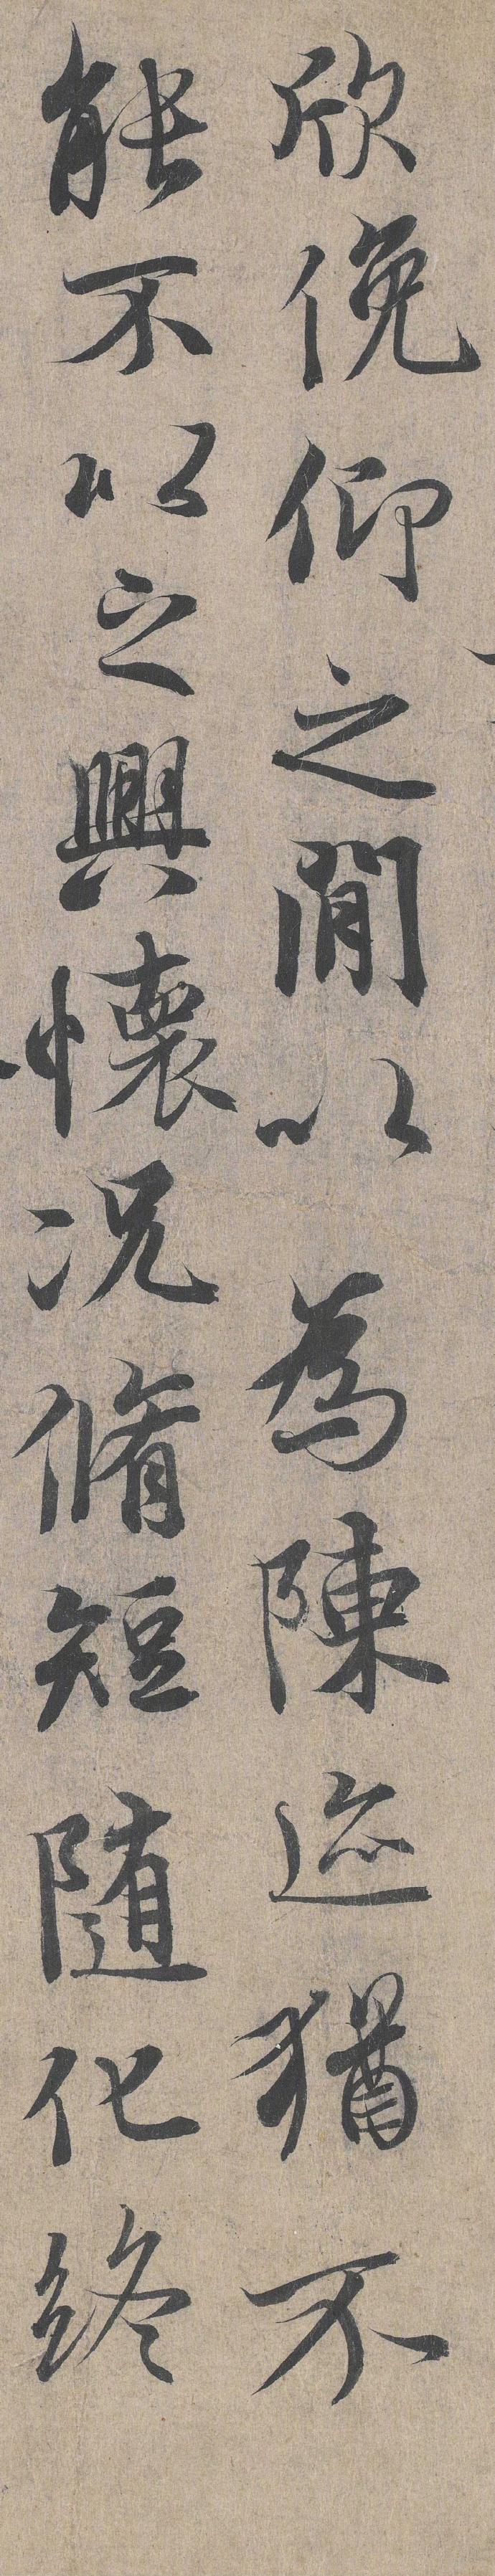 欣俛仰之閒以為陳迹猶不
能不以之興懷况脩短随化終